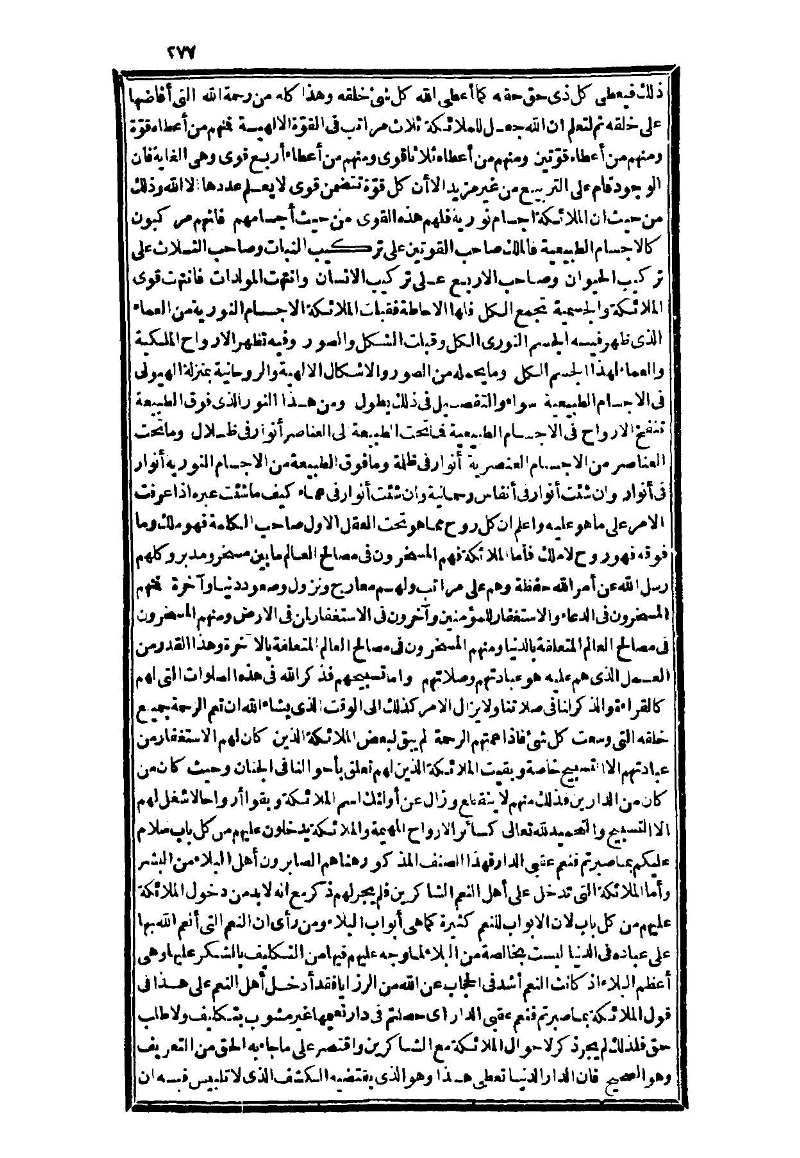 ٢٧٧
ذلك فيعطى كل ذى حق حقه كما أعطى الله كل شئ خلقه وهذا كله من رحمة الله التى أفاضها
على خلقه ثم لتعلم ان الله جعل للملائكة ثلاث مراتب فى القوة الالهية فمنهم من أعطاه قوة
ومنهم من أعطاه قوتين ومنهم من أعطاه ثلاثا قوى ومنهم من أعطاه أربع قوى وهى الغاية فان
الوجود قام على التربيع من غير مزيد الا أن كل قوة تتضمن قوى لا يعلم عددها الا الله وذلك
من حيث ان الملائكة اجسام نورية فلهم هذه القوى من حيث أجسامهم فانهم مركبون
كالاجسام الطبيعية فالملك صاحب القوتين على تركيب النبات وصاحب الثلاث على
تركيب الحيوان وصاحب الاربع على تركيب الانسان وانتهت المولدات فانتهت قوى
الملائكة والجسمية تجمع الكل فلها الاحاطة فقبلت الملائكة الاجسام النورية من العماء
الذى ظهر فيه الجسم النورى الكل وقبلت الشكل والصور وفيه تظهر الارواح الملكية
والعماء لهذا الجسم الكل وما يحمله من الصور والاشكال الالهية والروحانية بمنزلة الهيولى
فى الاجسام الطبيعية سواء والتفصيل فى ذلك يطول ومن هذا النور الذى فوق الطبيعة
تنفخ الارواح فى الاجسام الطبيعية فما تحت الطبيعة الى العناصر أنوار فى ظلال وما تحت
العناصر من الاجسام العنصرية أنوار فى ظلمة وما فوق الطبيعة من الاجسام النورية أنوار
فى أنوار وان شئت أنوار فى أنفاس رحمانية وان شئت أنوار فى عماء كيف ما شئت عبر اذا عرفت
الامر على ما هو عليه واعلم ان كل روح مما هو تحت العقل الاول صاحب الكلمة فهو ملك وما
فوقه فهو روح لا ملك فأما الملائكة فهم المسخرون فى مصالح العالم ما بين مسخر ومدبر وكلهم
رسل الله عن أمر الله حفظة وهم على مراتب ولهم معارج ونزول وصعود دنيا وآخرة فمنهم
المسخرون فى الدعاء والاستغفار للمؤمنين وآخرون فى الاستغفار لمن فى الارض ومنهم المسخرون
فى مصالح العالم المتعلقة بالدنيا ومنهم المسخرون فى مصالح العالم المتعلقة بالآخرة وهذا القدر من
العمل الذى هم عليه هو عبادتهم وصلاتهم واما تسبيحهم فذكر الله فى هذه الصلوات التى لهم
كالقراءة والذكر لنا فى صلاتنا ولا يزال الامر كذلك الى الوقت الذى يشاء الله ان تعم الرحمة جميع
خلقه التى وسعت كل شئ فاذا عمتهم الرحمة لم يبق لبعض الملائكة الذين كان لهم الاستغفار من
عبادتهم الا التسبيح خاصة وبقيت الملائكة الذين لهم تعلق بأحوالنا فى الجنان وحيث كان من
كان من الدارين فذلك منهم لا ينقطع وزال عن أولئك اسم الملائكة وبقوا أرواحا لا شغل لهم
الا التسبيح والتحميد لله تعالى كسائر الارواح المهيمة والملائكة يدخلون عليهم من كل باب سلام
عليكم بما صبرتم فنعم عقبى الدار فهذا الصنف المذكور هنا هم الصابرون أهل البلاء من البشر
وأما الملائكة التى تدخل على أهل النعم الشاكرين فلم يجر لهم ذكر مع انه لا بد من دخول الملائكة
عليهم من كل باب لان الابواب للنعم كثيرة كما هى أبواب البلاء ومن رأى ان النعم التى أنعم الله بها
على عباده فى الدنيا ليست بخالصة من البلاء لما وجه عليهم فيها من التكليف بالشكر عليها وهى
أعظم البلاء اذ كانت النعم أشد فى الحجاب عن الله من الرزايا فقد أدخل أهل النعم على هذا فى
قول الملائكة بما صبرتم فنعم عقبى الدار اى حصلتم فى دار نعيمها غير مشوب بتكليف ولا طلب
حق فلذلك لم يجر ذكر لاحوال الملائكة مع الشاكرين واقتصر على ما جاء به الحق من التعريف
وهو الصحيح فان الدار الدنيا تعطى هذا وهو الذى يقتضيه الكشف الذى لا تلبيس فيه ان